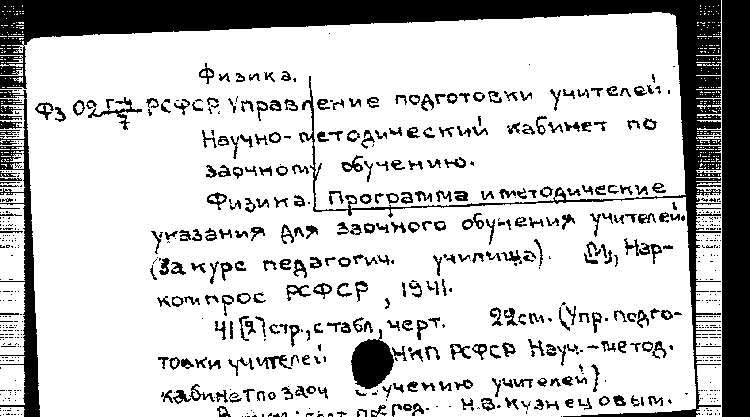 Физика.
Фз 02 РСФСР. Управление подготовки учителей.
Научно-методический кабинет по
заочному обучению.
Физика. Программа и методические
указания для заочного обучения учителей.
(За курс педагогич. училища). [М], Нар-
компрос РСФСР, 1941.
41[2] стр., с табл, черт. 22 см. (Упр. подго-
товки учителей НКП РСФСР Науч.-метод.
кабинет по заоч учению учителей).
Н.В. Кузнецовым.